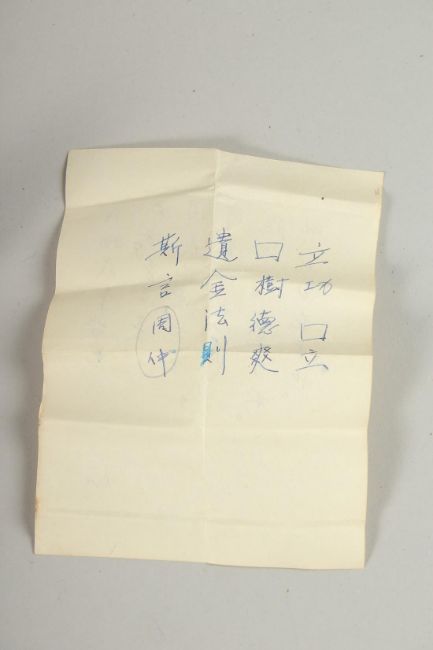 立功口立
口樹德爽
遺金法則
斯言周仲